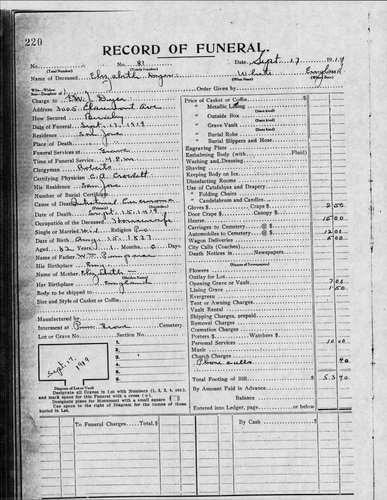 220
RECORD OF FUNERAL.
No. No. 81 Date, Sept. 17 1919
(Total Number) (Yearly Number)
Name of Deceased Elizabeth White England
(What Race) (Where Born)
Charge to Order Given by
Address 3005 Claremont Ave
How Secured
Date of Funeral Sept. 17, 1919
Residence San Jose
Place of Death
Funeral Services at Grave
Time of Funeral Service 4 P.M.
Clergyman Roberts
Certifying Physician C. A.
His Residence San Jose
Number of Burial Certificate
Cause of Death Intestinal Carcinoma
Date of Death Sept. 15, 1919
Occupation of the Deceased Housewife
Single or Married Wid Religion Pro
Date of Birth Aug. 15, 1837
Aged 82 Years 1 Months 0 Days
Name of Father Wm
His Birthplace Eng
Name of Mother Elizabeth
(Maiden Name)
Her Birthplace England
Body to be shipped to
Size and Style of Casket or Coffin
Manufactured by
Interment at Cemetery
Lot or Grave No. Section No.
1.
2.
3.
4.
5.
6.
Sept. 17, 1919
Diagram of Lot or Vault
Designate all Graves in Lot with Numbers (1, 2, 3, 4, etc.)
and mark space for this Funeral with a cross (+).
Designate place for Monument with a small square
Use space to the right of Diagram for the names of those
buried in Lot.
Price of Casket or Coffin
" Metallic Lining
(State kind)
" Outside Box
(State kind)
" Grave Vault
(State kind)
" Burial Robe
(State kind)
" Burial Slippers and Hose
Engraving Plate
Embalming Body (with Fluid)
Washing and Dressing
Shaving
Keeping Body on Ice
Disinfecting Rooms
Use of Catafalque and Drapery
" Folding Chairs
" Candelabrum and Candles
Gloves $ Crape $ 2 50
Door Crape $ Canopy $
Hearse 15 00
Carriages to Cemetery @ $
Automobiles to Cemetery @ $ 12 00
Wagon Deliveries 5 00
City Calls (@ $
Death Notices in Newspapers
Flowers
Outlay for Lot
Opening Grave or Vault 7 00
Lining Grave 1 50
Evergreen
Tent or Awning Charges
Vault Rental
Shipping Charges, prepaid
Removal Charges
Cremation Charges
Porters $ Watchers $
Personal Services 10 00
Music
Church Charges
Phone calls 40
Total Footing of Bill $ 53 40
By Amount Paid in Advance
Balance
Entered into Ledger, page or below
To Funeral Charges, Total $ By Cash $